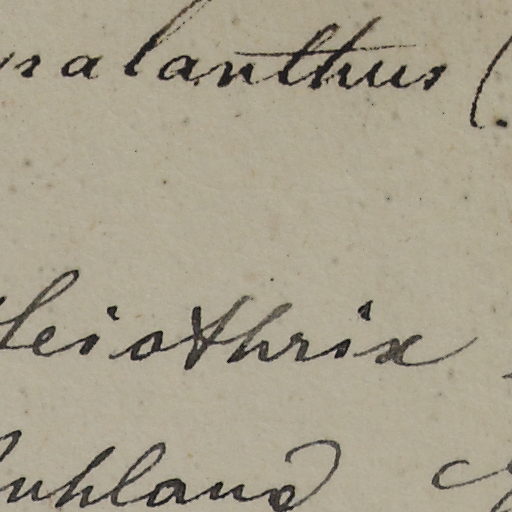 palanthus (
Leiothrix
uhland